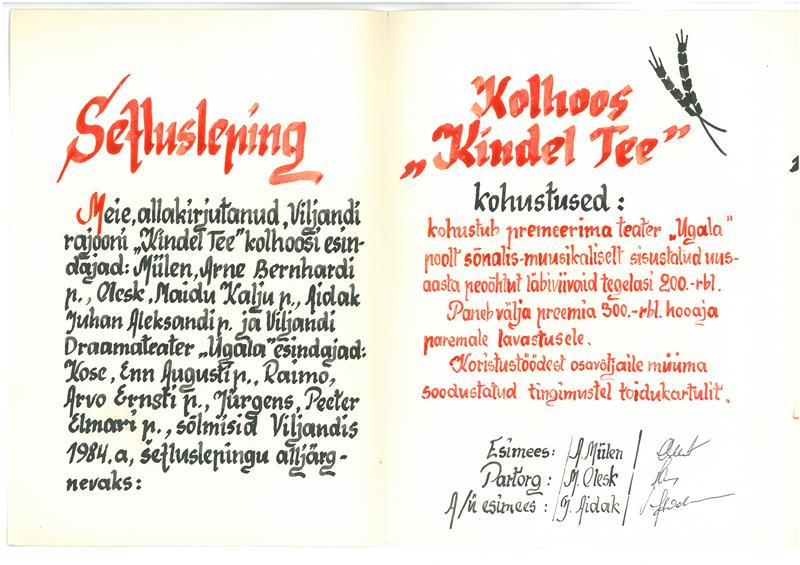 Šeflusleping
Meie, allakirjutanud, Viljandi
rajooni „Kindel Tee" kolhoosi esin-
dajad: Mülen, Arne Bernhardi
p., Olesk, Maidu Kalju p., Aidak
Juhan Aleksandi p. ja Viljandi
Draamateater „Ugala" esindajad:
Kose, Enn Augusti p., Raimo,
Arvo Ernsti p., Jürgens, Peeter
Elmari p., sõlmisid Viljandis
1984.a, šefluslepingu alljärg-
nevaks:
Kolhoos
„Kindel Tee"
kohustused:
kohustub premeerima teater „Ugala"
poolt sõnalis-muusikaliselt sisustatud uus-
aasta peoõhtut läbiviivaid tegelasi 200.-rbl.
Paneb välja preemia 300.-rbl. hooaja
paremale lavastusele.
Koristustöödest osavõtjaile müüma
soodustatud tingimustel toidukartulit.
Esimees: /A. Mülen/
Partorg: /M. Olesk/
A/ü esimees: /J. Aidak/